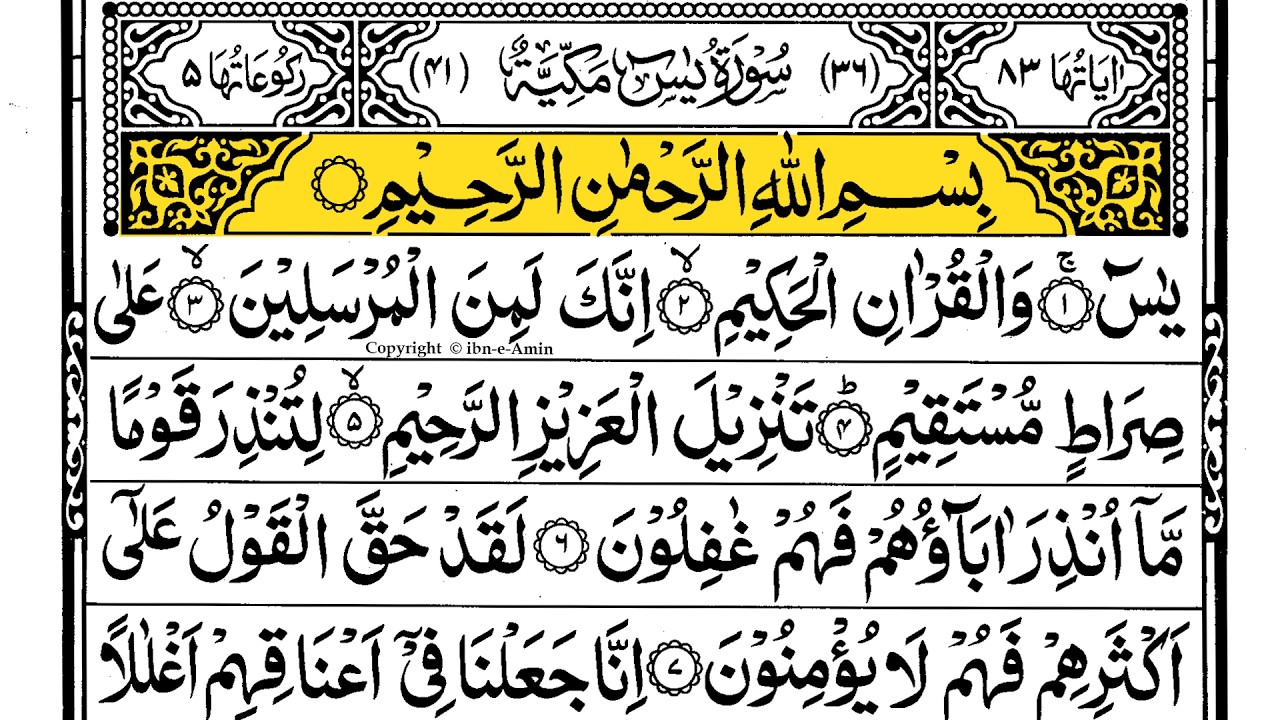 اٰيَاتُهَا ٨٣ (٣٦) سُوْرَةُ يٰسٓ مَكِّيَّةٌ (٤١) رُكُوْعَاتُهَا ۵
بِسْمِ اللّٰهِ الرَّحْمٰنِ الرَّحِيْمِ
يٰسٓ ۚ‏ ﴿۱﴾ وَالْقُرْاٰنِ الْحَكِيْمِ ۙ‏ ﴿۲﴾ اِنَّكَ لَمِنَ الْمُرْسَلِيْنَ ۙ‏ ﴿۳﴾ عَلٰى
Copyright © ibn-e-Amin
صِرَاطٍ مُّسْتَقِيْمٍ ؕ‏ ﴿۴﴾ تَنْزِيْلَ الْعَزِيْزِ الرَّحِيْمِ ۙ‏ ﴿۵﴾ لِتُنْذِرَ قَوْمًا
مَّاۤ اُنْذِرَ اٰبَآؤُهُمْ فَهُمْ غٰفِلُوْنَ ﴿۶﴾ لَقَدْ حَقَّ الْقَوْلُ عَلٰٓى
اَكْثَرِهِمْ فَهُمْ لَا يُؤْمِنُوْنَ ﴿۷﴾ اِنَّا جَعَلْنَا فِىْۤ اَعْنَاقِهِمْ اَغْلٰلًا